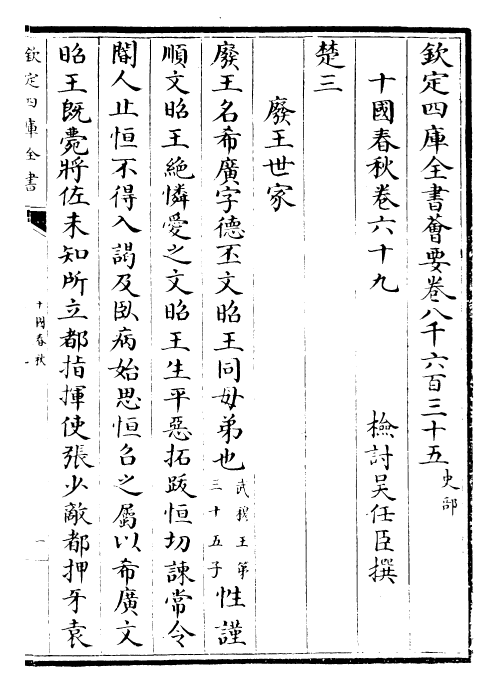 欽定四庫全書薈要卷八千六百三十五史部
十國春秋卷六十九
檢討吳任臣撰
楚三
廢王世家
廢王名希廣字德丕文昭王同母弟也武穆王第三十五子性謹
順文昭王絶憐愛之文昭王生平惡拓跋恒切諫常令
閽人止恒不得入謁及臥病始思恒召之屬以希廣文
昭王既薨將佐未知所立都指揮使張少敵都押牙袁
欽定四庫全書
十國春秋
一